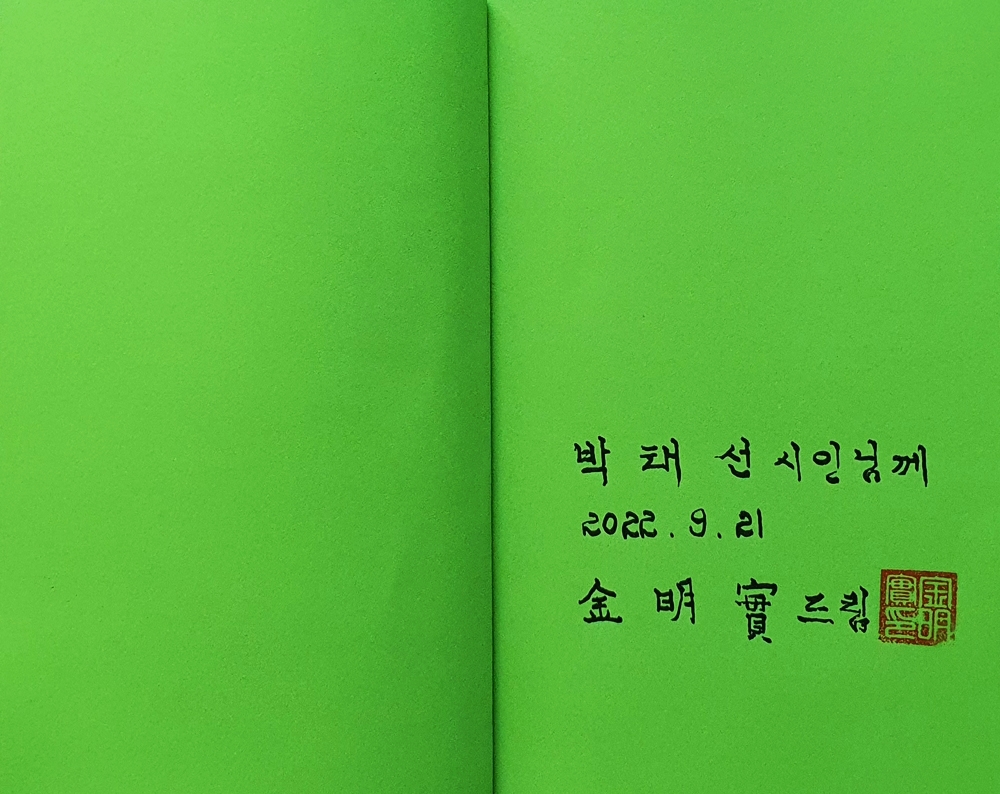 박 태 선 시인님께
2022. 9. 21
金 明 實 드림
金明實印